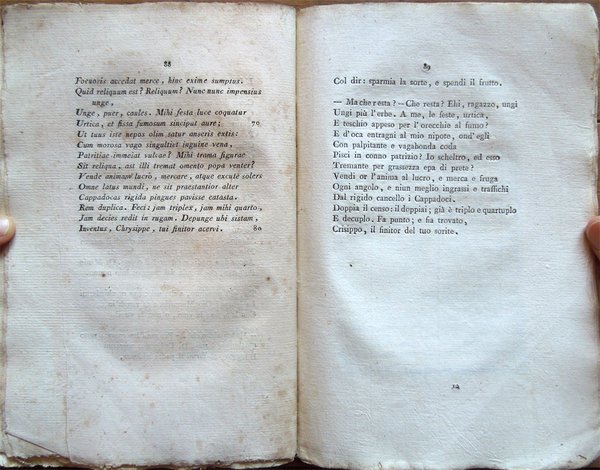 88
Foenoris accedat merce, hinc exime sumptus.
Quid reliquum est? Reliquum? Nunc nunc impensius
unge,
Unge, puer, caules. Mihi festa luce coquatur
Urtica, et fissa fumosum sinciput aure; 70
Ut tuus iste nepos olim satur anseris extis:
Cum morosa vago singultiet inguine vena,
Patritiae immeiat vulvae? Mihi trama figurae
Sit reliqua, ast illi tremat omento popa venter?
Vende animam lucro, mercare, atque excute solers
Omne latus mundi, ne sit praestantior alter
Cappadocas rigida pingues pavisse catasta.
Rem duplica. Feci: jam triplex, jam mihi quarto,
Jam decies redit in rugam. Depunge ubi sistam,
Inventus, Chrysippe, tui finitor acervi. 80
89
Col dir: sparmia la sorte, e spendi il frutto.
— Ma che resta? — Che resta? Ehi, ragazzo, ungi
Ungi più l'erbe. A me, le feste, urtica,
E teschio appeso per l'orecchie al fumo?
E d'oca entragni al mio nipote, ond'egli
Con palpitante e vagabonda coda
Pisci in conno patrizio? Io scheltro, ed esso
Tremante per grassezza epa di prete?
Vendi or l'anima al lucro, e merca e fruga
Ogni angolo, e niun meglio ingrassi e traffichi
Dal rigido cancello i Cappadoci.
Doppia il censo: il doppiai; già è triplo e quartuplo
E decuplo. Fa punto; e fia trovato,
Crisippo, il finitor del tuo sorite.
12